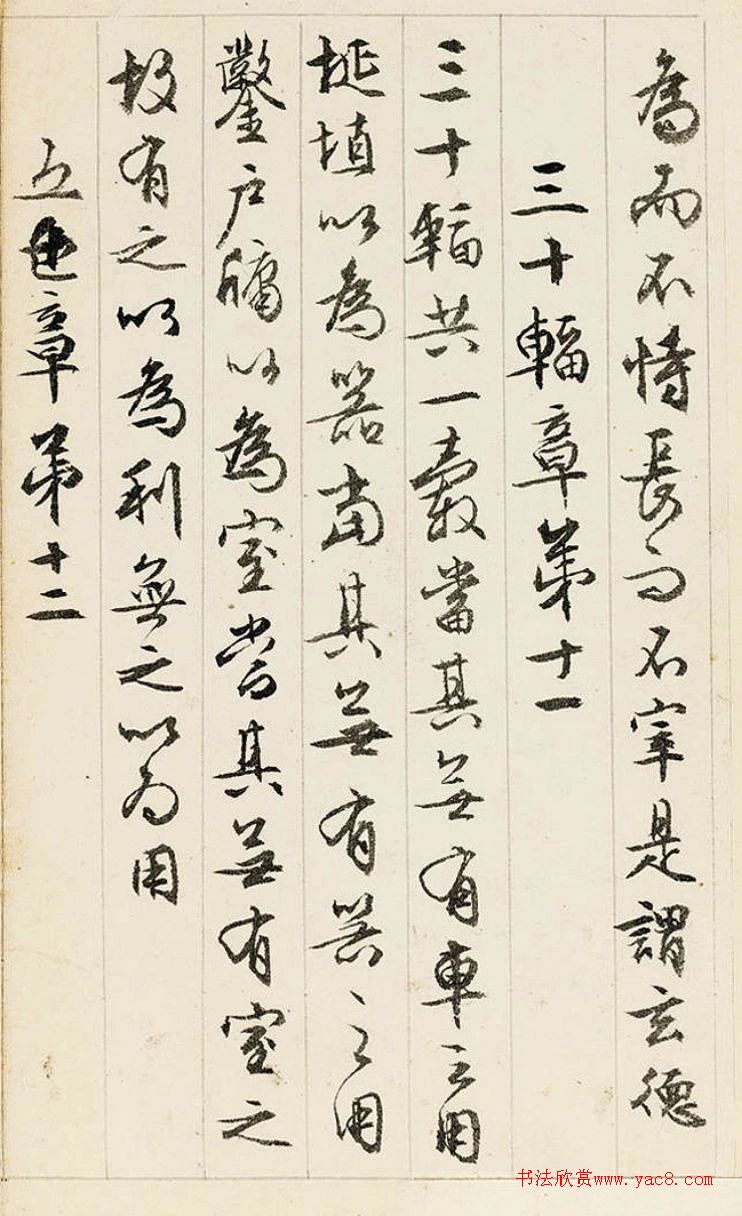 為而不恃長而不宰是謂玄德
三十輻章第十一
三十輻共一轂當其無有車之用
埏埴以為器當其無有器之用
鑿戶牖以為室當其無有室之
故有之以為利無之以為用
五色章第十二
书法欣赏www.yac8.com